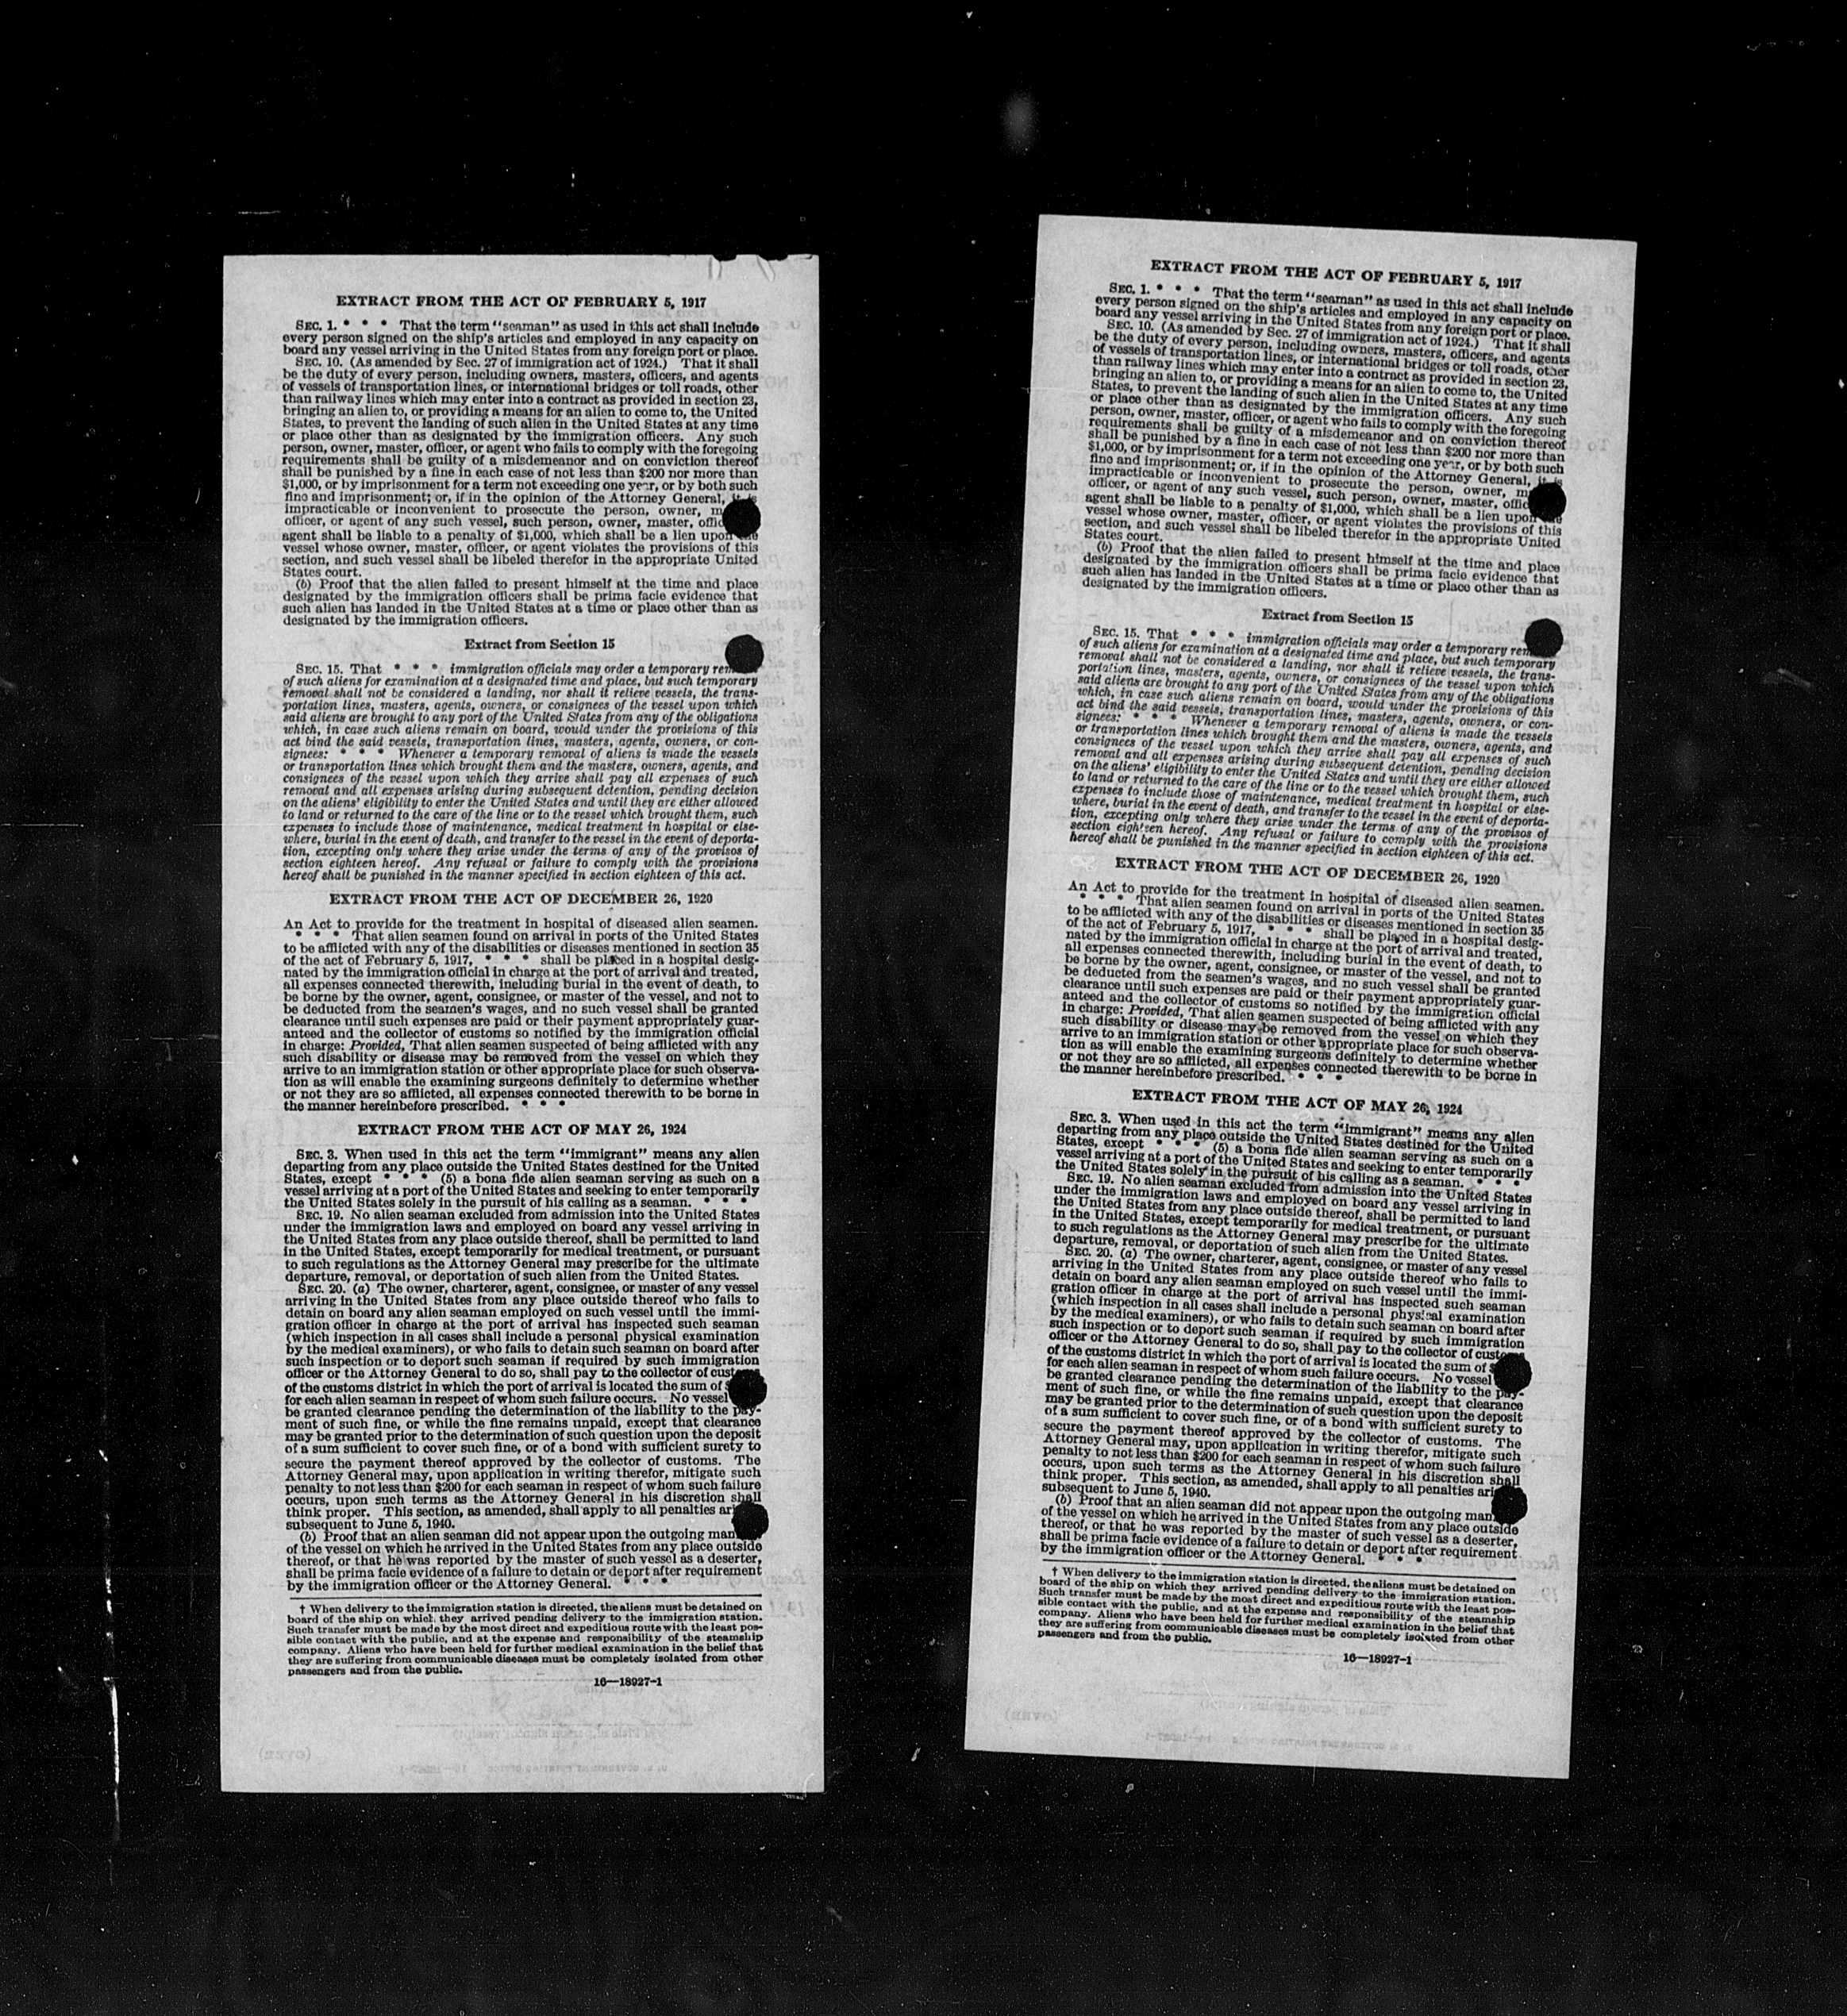 EXTRACT FROM THE ACT OF FEBRUARY 5, 1917
SEC. 1. * * * That the term "seaman" as used in this act shall include
every person signed on the ship's articles and employed in any capacity on
board any vessel arriving in the United States from any foreign port or place.
SEC. 10. (As amended by Sec. 27 of immigration act of 1924.) That it shall
be the duty of every person, including owners, masters, officers, and agents
of vessels of transportation lines, or international bridges or toll roads, other
than railway lines which may enter into a contract as provided in section 23,
bringing an alien to, or providing a means for an alien to come to, the United
States, to prevent the landing of such alien in the United States at any time
or place other than as designated by the immigration officers. Any such
person, owner, master, officer, or agent who fails to comply with the foregoing
requirements shall be guilty of a misdemeanor and on conviction thereof
shall be punished by a fine in each case of not less than $200 nor more than
$1,000, or by imprisonment for a term not exceeding one year, or by both such
fine and imprisonment; or, if in the opinion of the Attorney General, it is
impracticable or inconvenient to prosecute the person, owner,
officer, or agent of any such vessel, such person, owner, master,
agent shall be liable to a penalty of $1,000, which shall be a lien upon
vessel whose owner, master, officer, or agent violates the provisions of this
section, and such vessel shall be libeled therefor in the appropriate United
States court.
(b) Proof that the alien failed to present himself at the time and place
designated by the immigration officers shall be prima facie evidence that
such alien has landed in the United States at a time or place other than as
designated by the immigration officers.
Extract from Section 15
SEC. 15. That * * * immigration officials may order a temporary
of such aliens for examination at a designated time and place, but such temporary
removal shall not be considered a landing, nor shall it relieve vessels, the trans-
portation lines, masters, agents, owners, or consignees of the vessel upon which
said aliens are brought to any port of the United States from any of the obligations
which, in case such aliens remain on board, would under the provisions of this
act bind the said vessels, transportation lines, masters, agents, owners, or con-
signees: * * * Whenever a temporary removal of aliens is made the vessels
or transportation lines which brought them and the masters, owners, agents, and
consignees of the vessel upon which they arrive shall pay all expenses of such
removal and all expenses arising during subsequent detention, pending decision
on the aliens' eligibility to enter the United States and until they are either allowed
to land or returned to the care of the line or to the vessel which brought them, such
expenses to include those of maintenance, medical treatment in hospital or else-
where, burial in the event of death, and transfer to the vessel in the event of deporta-
tion, excepting only where they arise under the terms of any of the provisos of
section eighteen hereof. Any refusal or failure to comply with the provisions
hereof shall be punished in the manner specified in section eighteen of this act.
EXTRACT FROM THE ACT OF DECEMBER 26, 1920
An Act to provide for the treatment in hospital of diseased alien seamen.
* * * That alien seamen found on arrival in ports of the United States
to be afflicted with any of the disabilities or diseases mentioned in section 35
of the act of February 5, 1917, * * * shall be placed in a hospital desig-
nated by the immigration official in charge at the port of arrival and treated,
all expenses connected therewith, including burial in the event of death, to
be borne by the owner, agent, consignee, or master of the vessel, and not to
be deducted from the seamen's wages, and no such vessel shall be granted
clearance until such expenses are paid or their payment appropriately guar-
anteed and the collector of customs so notified by the immigration official
in charge: Provided, That alien seamen suspected of being afflicted with any
such disability or disease may be removed from the vessel on which they
arrive to an immigration station or other appropriate place for such observa-
tion as will enable the examining surgeons definitely to determine whether
or not they are so afflicted, all expenses connected therewith to be borne in
the manner hereinbefore prescribed. * * *
EXTRACT FROM THE ACT OF MAY 26, 1924
SEC. 3. When used in this act the term "immigrant" means any alien
departing from any place outside the United States destined for the United
States, except * * * (5) a bona fide alien seaman serving as such on a
vessel arriving at a port of the United States and seeking to enter temporarily
the United States solely in the pursuit of his calling as a seaman. * * *
SEC. 19. No alien seaman excluded from admission into the United States
under the immigration laws and employed on board any vessel arriving in
the United States from any place outside thereof, shall be permitted to land
in the United States, except temporarily for medical treatment, or pursuant
to such regulations as the Attorney General may prescribe for the ultimate
departure, removal, or deportation of such alien from the United States.
SEC. 20. (a) The owner, charterer, agent, consignee, or master of any vessel
arriving in the United States from any place outside thereof who fails to
detain on board any alien seaman employed on such vessel until the immi-
gration officer in charge at the port of arrival has inspected such seaman
(which inspection in all cases shall include a personal physical examination
by the medical examiners), or who fails to detain such seaman on board after
such inspection or to deport such seaman if required by such immigration
officer or the Attorney General to do so, shall pay to the collector of customs
of the customs district in which the port of arrival is located the sum of
for each alien seaman in respect of whom such failure occurs. No vessel
be granted clearance pending the determination of the liability to the pay-
ment of such fine, or while the fine remains unpaid, except that clearance
may be granted prior to the determination of such question upon the deposit
of a sum sufficient to cover such fine, or of a bond with sufficient surety to
secure the payment thereof approved by the collector of customs. The
Attorney General may, upon application in writing therefor, mitigate such
penalty to not less than $200 for each seaman in respect of whom such failure
occurs, upon such terms as the Attorney General in his discretion shall
think proper. This section, as amended, shall apply to all penalties
subsequent to June 5, 1940.
(b) Proof that an alien seaman did not appear upon the outgoing
of the vessel on which he arrived in the United States from any place outside
thereof, or that he was reported by the master of such vessel as a deserter,
shall be prima facie evidence of a failure to detain or deport after requirement
by the immigration officer or the Attorney General. * * *
† When delivery to the immigration station is directed, the aliens must be detained on
board of the ship on which they arrived pending delivery to the immigration station.
Such transfer must be made by the most direct and expeditious route with the least pos-
sible contact with the public, and at the expense and responsibility of the steamship
company. Aliens who have been held for further medical examination in the belief that
they are suffering from communicable diseases must be completely isolated from other
passengers and from the public.
16—18927-1
EXTRACT FROM THE ACT OF FEBRUARY 5, 1917
SEC. 1. * * * That the term "seaman" as used in this act shall include
every person signed on the ship's articles and employed in any capacity on
board any vessel arriving in the United States from any foreign port or place.
SEC. 10. (As amended by Sec. 27 of immigration act of 1924.) That it shall
be the duty of every person, including owners, masters, officers, and agents
of vessels of transportation lines, or international bridges or toll roads, other
than railway lines which may enter into a contract as provided in section 23,
bringing an alien to, or providing a means for an alien to come to, the United
States, to prevent the landing of such alien in the United States at any time
or place other than as designated by the immigration officers. Any such
person, owner, master, officer, or agent who fails to comply with the foregoing
requirements shall be guilty of a misdemeanor and on conviction thereof
shall be punished by a fine in each case of not less than $200 nor more than
$1,000, or by imprisonment for a term not exceeding one year, or by both such
fine and imprisonment; or, if in the opinion of the Attorney General, it is
impracticable or inconvenient to prosecute the person, owner,
officer, or agent of any such vessel, such person, owner, master,
agent shall be liable to a penalty of $1,000, which shall be a lien upon
vessel whose owner, master, officer, or agent violates the provisions of this
section, and such vessel shall be libeled therefor in the appropriate United
States court.
(b) Proof that the alien failed to present himself at the time and place
designated by the immigration officers shall be prima facie evidence that
such alien has landed in the United States at a time or place other than as
designated by the immigration officers.
Extract from Section 15
SEC. 15. That * * * immigration officials may order a temporary
of such aliens for examination at a designated time and place, but such temporary
removal shall not be considered a landing, nor shall it relieve vessels, the trans-
portation lines, masters, agents, owners, or consignees of the vessel upon which
said aliens are brought to any port of the United States from any of the obligations
which, in case such aliens remain on board, would under the provisions of this
act bind the said vessels, transportation lines, masters, agents, owners, or con-
signees: * * * Whenever a temporary removal of aliens is made the vessels
or transportation lines which brought them and the masters, owners, agents, and
consignees of the vessel upon which they arrive shall pay all expenses of such
removal and all expenses arising during subsequent detention, pending decision
on the aliens' eligibility to enter the United States and until they are either allowed
to land or returned to the care of the line or to the vessel which brought them, such
expenses to include those of maintenance, medical treatment in hospital or else-
where, burial in the event of death, and transfer to the vessel in the event of deporta-
tion, excepting only where they arise under the terms of any of the provisos of
section eighteen hereof. Any refusal or failure to comply with the provisions
hereof shall be punished in the manner specified in section eighteen of this act.
EXTRACT FROM THE ACT OF DECEMBER 26, 1920
An Act to provide for the treatment in hospital of diseased alien seamen.
* * * That alien seamen found on arrival in ports of the United States
to be afflicted with any of the disabilities or diseases mentioned in section 35
of the act of February 5, 1917, * * * shall be placed in a hospital desig-
nated by the immigration official in charge at the port of arrival and treated,
all expenses connected therewith, including burial in the event of death, to
be borne by the owner, agent, consignee, or master of the vessel, and not to
be deducted from the seamen's wages, and no such vessel shall be granted
clearance until such expenses are paid or their payment appropriately guar-
anteed and the collector of customs so notified by the immigration official
in charge: Provided, That alien seamen suspected of being afflicted with any
such disability or disease may be removed from the vessel on which they
arrive to an immigration station or other appropriate place for such observa-
tion as will enable the examining surgeons definitely to determine whether
or not they are so afflicted, all expenses connected therewith to be borne in
the manner hereinbefore prescribed. * * *
EXTRACT FROM THE ACT OF MAY 26, 1924
SEC. 3. When used in this act the term "immigrant" means any alien
departing from any place outside the United States destined for the United
States, except * * * (5) a bona fide alien seaman serving as such on a
vessel arriving at a port of the United States and seeking to enter temporarily
the United States solely in the pursuit of his calling as a seaman. * * *
SEC. 19. No alien seaman excluded from admission into the United States
under the immigration laws and employed on board any vessel arriving in
the United States from any place outside thereof, shall be permitted to land
in the United States, except temporarily for medical treatment, or pursuant
to such regulations as the Attorney General may prescribe for the ultimate
departure, removal, or deportation of such alien from the United States.
SEC. 20. (a) The owner, charterer, agent, consignee, or master of any vessel
arriving in the United States from any place outside thereof who fails to
detain on board any alien seaman employed on such vessel until the immi-
gration officer in charge at the port of arrival has inspected such seaman
(which inspection in all cases shall include a personal physical examination
by the medical examiners), or who fails to detain such seaman on board after
such inspection or to deport such seaman if required by such immigration
officer or the Attorney General to do so, shall pay to the collector of customs
of the customs district in which the port of arrival is located the sum of
for each alien seaman in respect of whom such failure occurs. No vessel
be granted clearance pending the determination of the liability to the pay-
ment of such fine, or while the fine remains unpaid, except that clearance
may be granted prior to the determination of such question upon the deposit
of a sum sufficient to cover such fine, or of a bond with sufficient surety to
secure the payment thereof approved by the collector of customs. The
Attorney General may, upon application in writing therefor, mitigate such
penalty to not less than $200 for each seaman in respect of whom such failure
occurs, upon such terms as the Attorney General in his discretion shall
think proper. This section, as amended, shall apply to all penalties
subsequent to June 5, 1940.
(b) Proof that an alien seaman did not appear upon the outgoing
of the vessel on which he arrived in the United States from any place outside
thereof, or that he was reported by the master of such vessel as a deserter,
shall be prima facie evidence of a failure to detain or deport after requirement
by the immigration officer or the Attorney General. * * *
† When delivery to the immigration station is directed, the aliens must be detained on
board of the ship on which they arrived pending delivery to the immigration station.
Such transfer must be made by the most direct and expeditious route with the least pos-
sible contact with the public, and at the expense and responsibility of the steamship
company. Aliens who have been held for further medical examination in the belief that
they are suffering from communicable diseases must be completely isolated from other
passengers and from the public.
16—18927-1